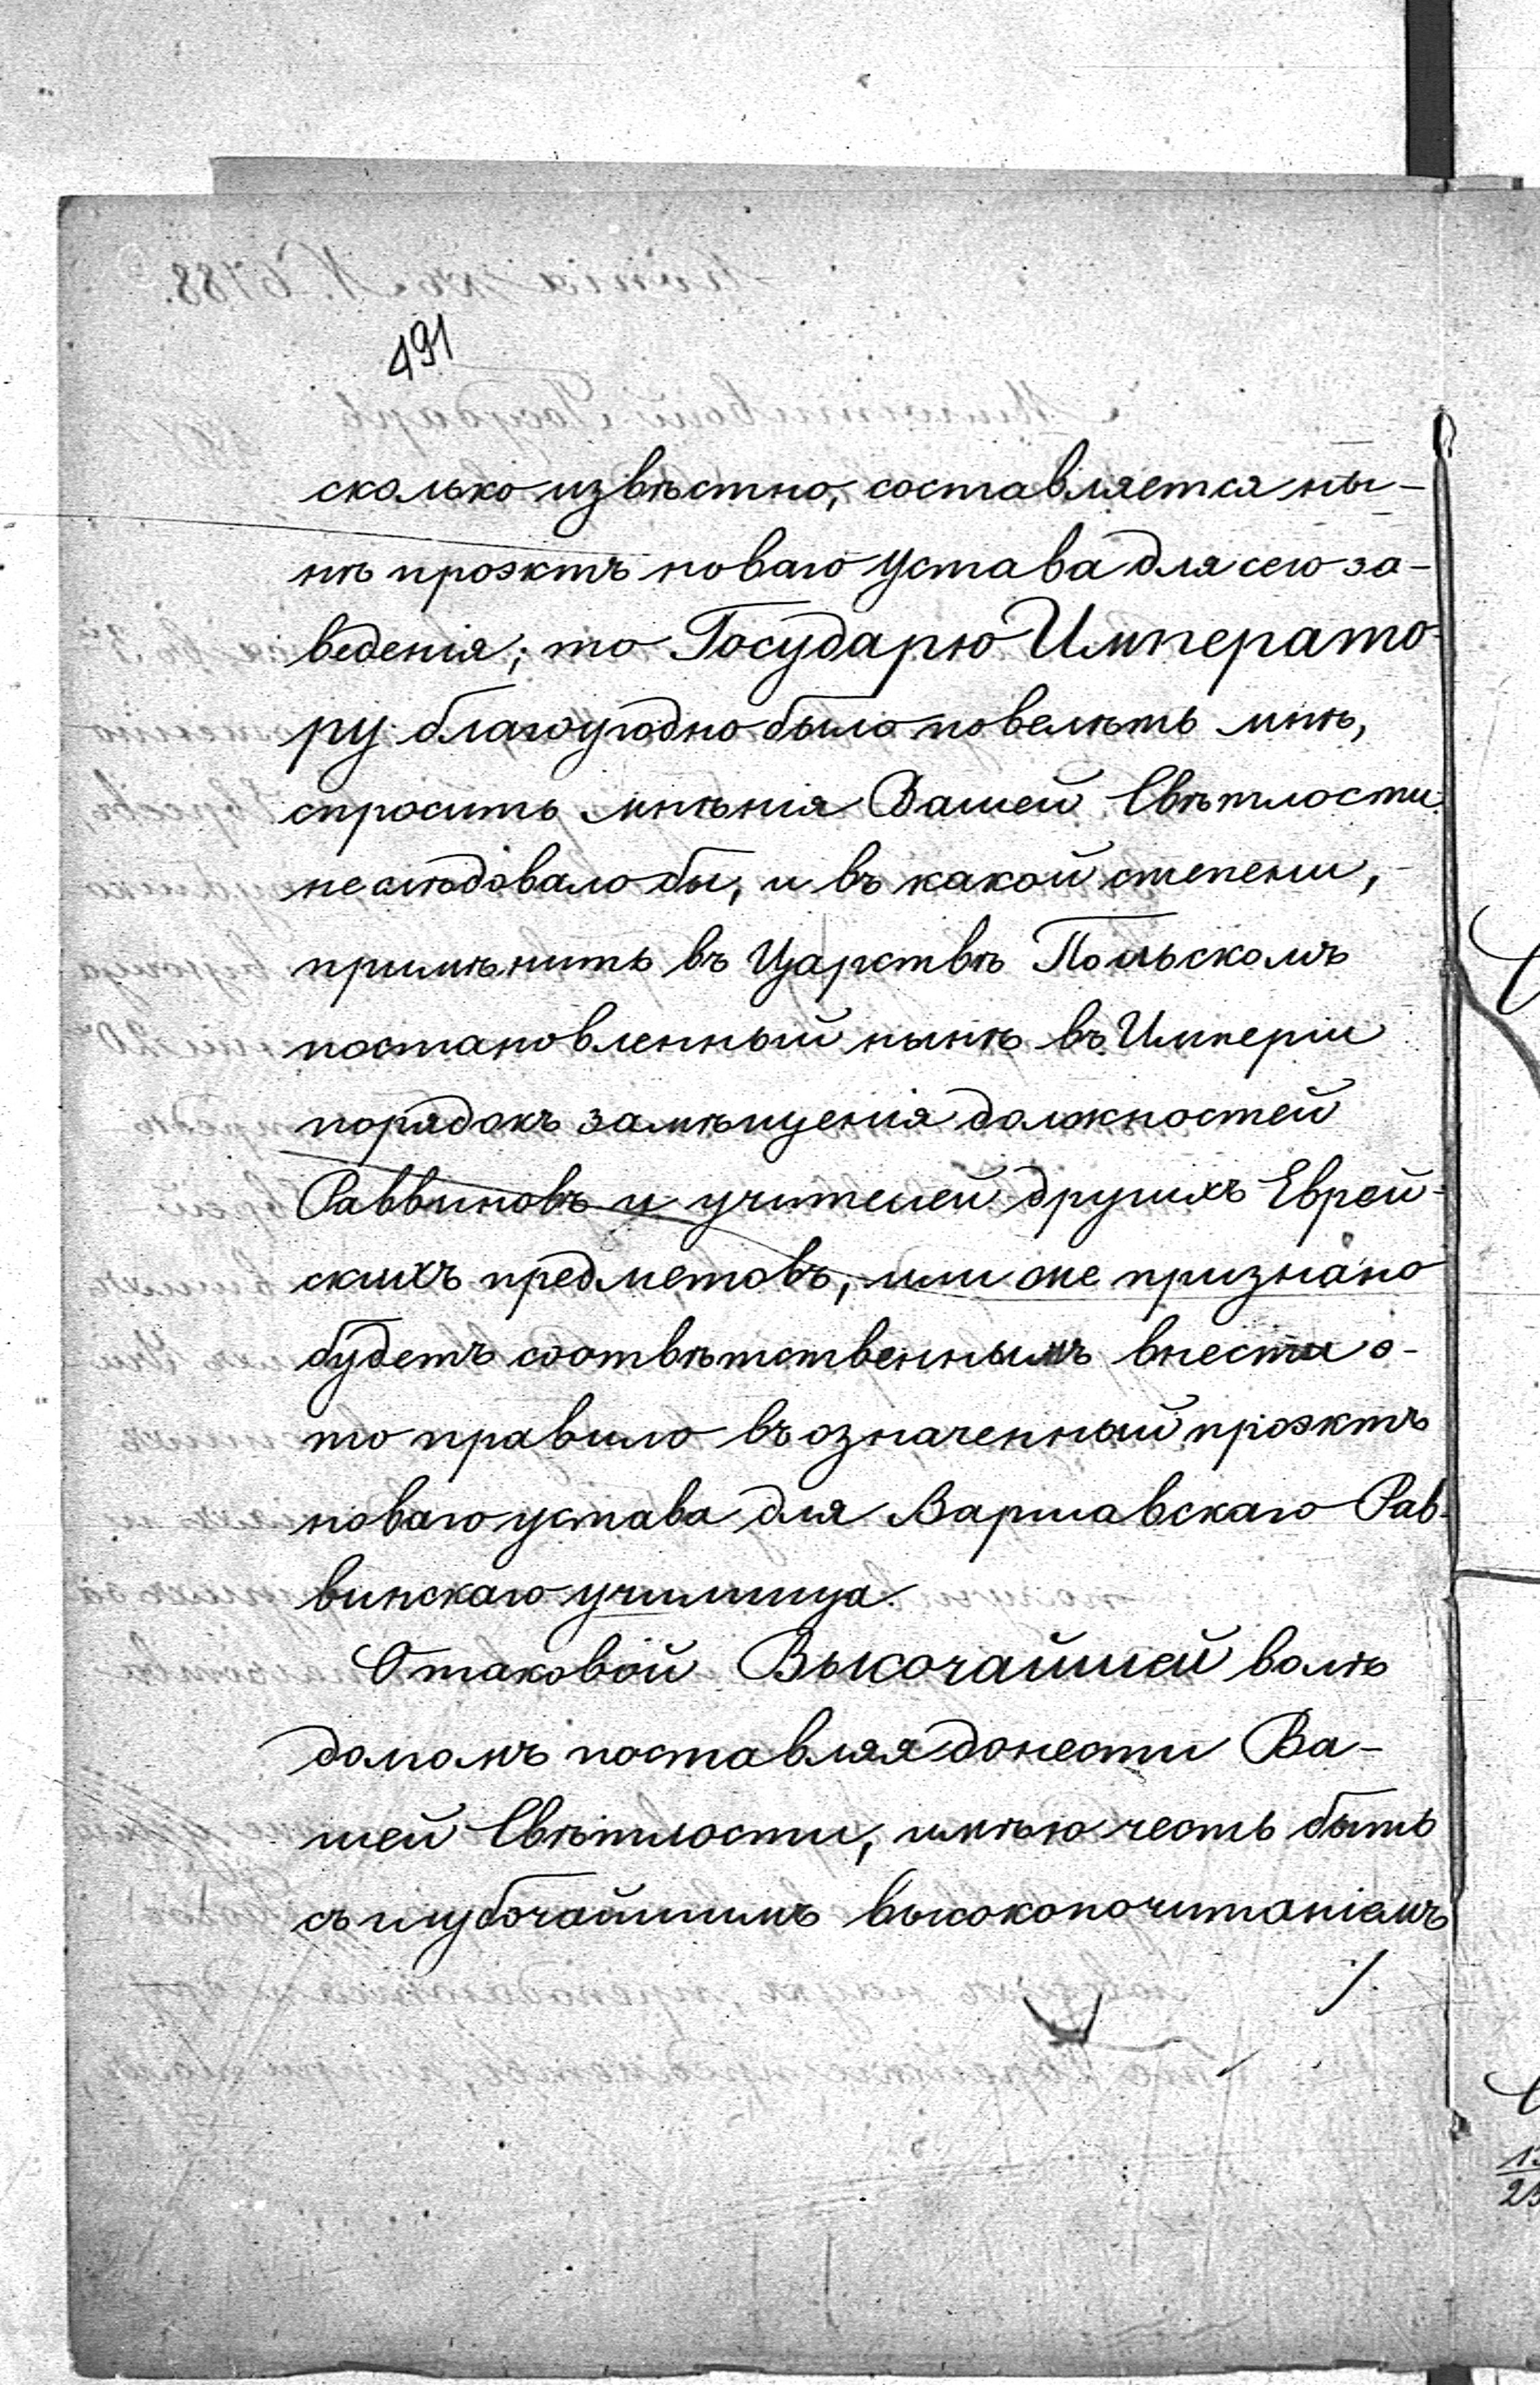 491
сколько извѣстно, составляется ны-
нѣ проэктъ новаго Устава для сего за-
веденія; то Государю Императо-
ру благоугодно было повелѣть мнѣ,
спросить мнѣнія Вашей Свѣтлости:
не слѣдовало бы, и въ какой степени,
примѣнить въ Царствѣ Польскомъ
постановленный нынѣ въ Имперіи
порядокъ замѣщенія должностей
Раввиновъ и учителей другихъ Еврей-
скихъ предметовъ, или же признано
будетъ соотвѣтственнымъ внести э-
то правило въ означенный проэктъ
новаго устава для Варшавскаго Рав-
винскаго училища.
О таковой Высочайшей волѣ
долгомъ поставляя донести Ва-
шей Свѣтлости, имѣю честь быть
съ глубочайшимъ высокопочитаніемъ